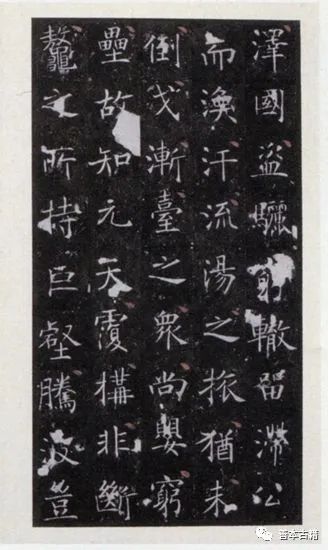 澤國盜驪轍留滯公
而渙汗流湯之旅猶未
倒戈漸臺之衆尚嬰窮
壘故知元天覆構非斷
鼇之所持巨壑騰波豈
善本古籍